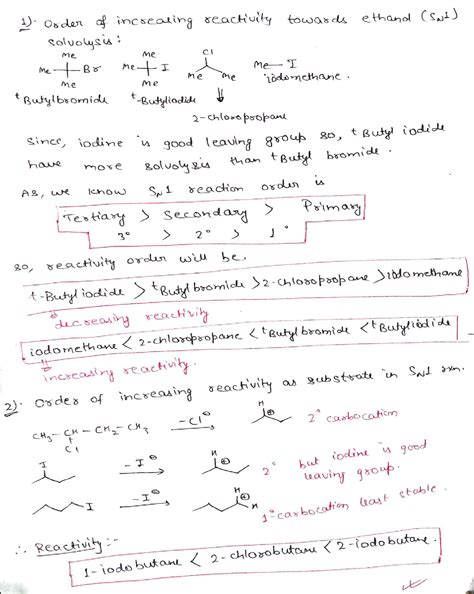 1). Order of increasing reactivity towards ethanol (SN1)
solvolysis:
Me Me Cl
Me Br Me I Me Me Me I
Me Me iodomethane.
tButylbromide t-Butyliodide 2-chloropropane
Since, iodine is good leaving group so, tButyl iodide
have more solvolysis than tButyl bromide.
As, we know SN1 reaction order is
Tertiary > Secondary > Primary
3° > 2° > 1°
so, reactivity order will be.
t-Butyl iodide > tButyl bromide > 2-chloropropane > iodomethane
decreasing reactivity
iodomethane < 2-chloropropane < tButyl bromide < tButyliodide
increasing reactivity.
2). Order of increasing reactivity as substrate in SN1 rxn.
CH3 - CH - CH2 - CH3 -Cl⊖ H ⊕ 2° carbocation
Cl
I -I⊖ H ⊕ 2° but iodine is good
leaving group.
I -I⊖ H ⊕ H 1° carbocation least stable.
∴ Reactivity :-
1-iodobutane < 2-chlorobutane < 2-iodobutane.